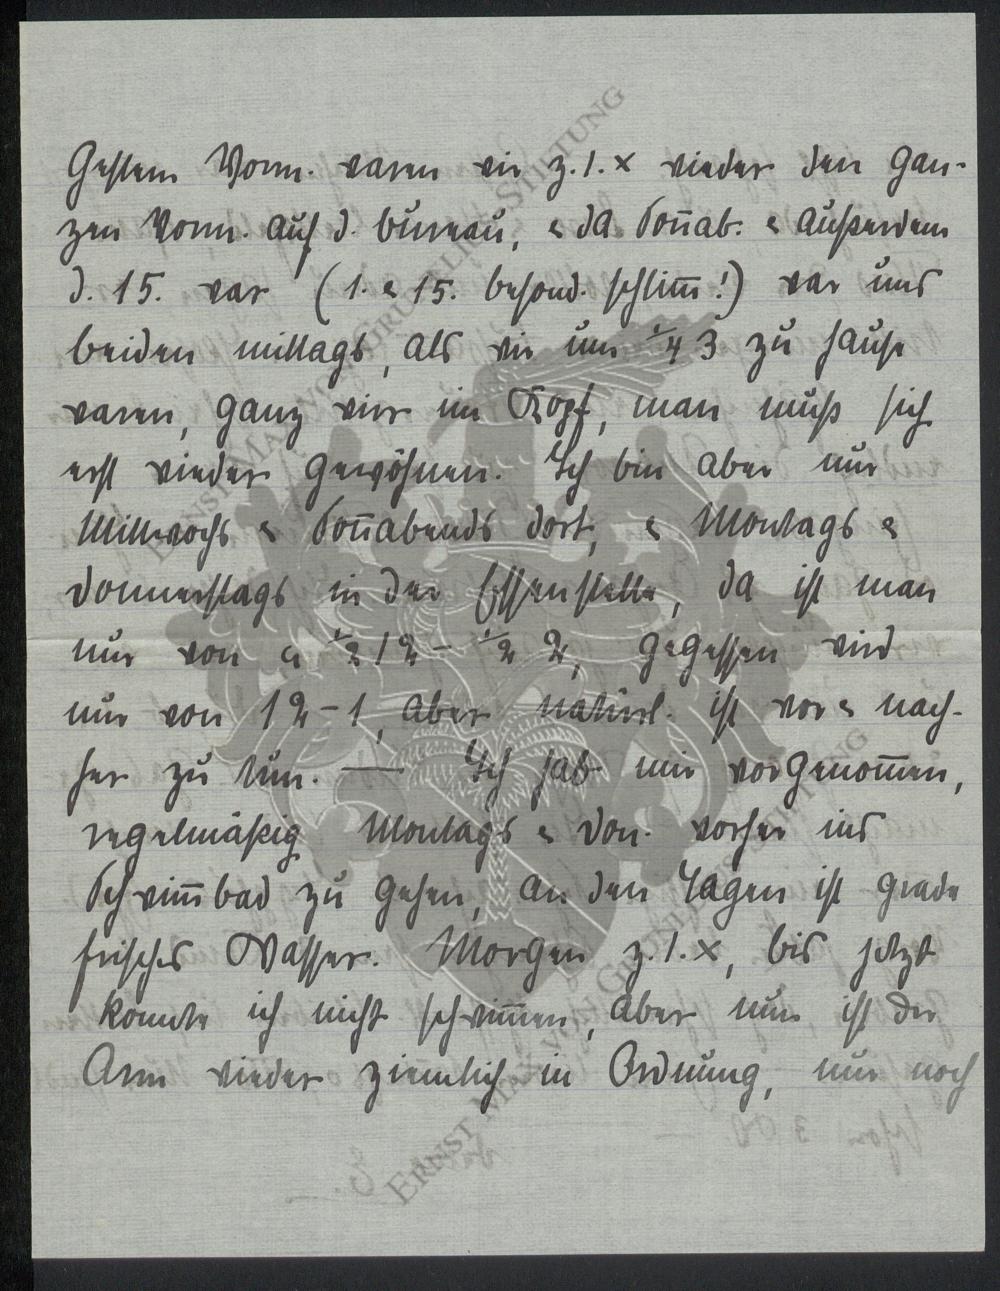 Gestern Vorm. waren wir z. 1. x wieder den gan-
zen Vorm. auf d. Bureau, & da Sonnab. & außerdem
d. 15. war (1. & 15. besond. schlimm!) war uns
beiden mittags, als wir um ¼ 3 zu Hause
waren, ganz wirr im Kopf, man muß sich
erst wieder gewöhnen. Ich bin aber nur
Mittwochs & Sonnabends dort, & Montags &
Donnerstags in der Essenstelle, da ist man
nur von ca ½ 12 – ½ 2, gegessen wird
nur von 12 – 1, aber natürl. ist vor & nach-
her zu tun. — Ich hab mir vorgenommen,
regelmäßig Montags & Don. vorher ins
Schwimmbad zu gehen, an den Tagen ist grade
frisches Wasser. Morgen z. 1. x, bis jetzt
konnte ich nicht schwimmen, aber nun ist der
Arm wieder ziemlich in Ordnung, nur noch
ERNST MAX VON GRUNELIUS-STIFTUNG
ERNST MAX VON GRUNELIUS-STIFTUNG